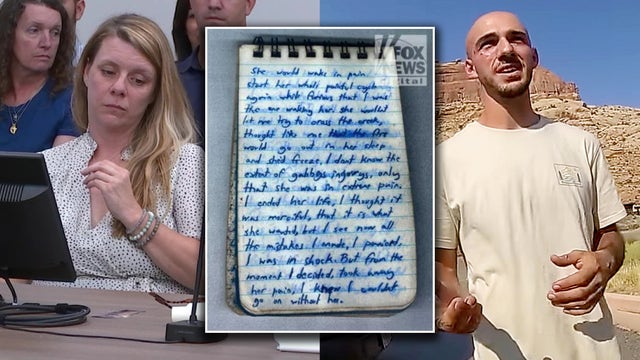 FOX
NEWS
gital
She would wake in pain
start her whole painful cycle
again while furious that I was
the one waking her. She wouldn't
let me try to cross the creek,
thought like me that the fire
would go out in her sleep
and she'd freeze. I don't know the
extent of gabbys injurys, only
that she was in extreme pain.
I ended her life, I thought it
was merciful, that it is what
she wanted, but I see now all
the mistakes I made, I panicked,
I was in shock. But from the
moment I decided, took away
her pain, I knew I couldn't
go on without her.